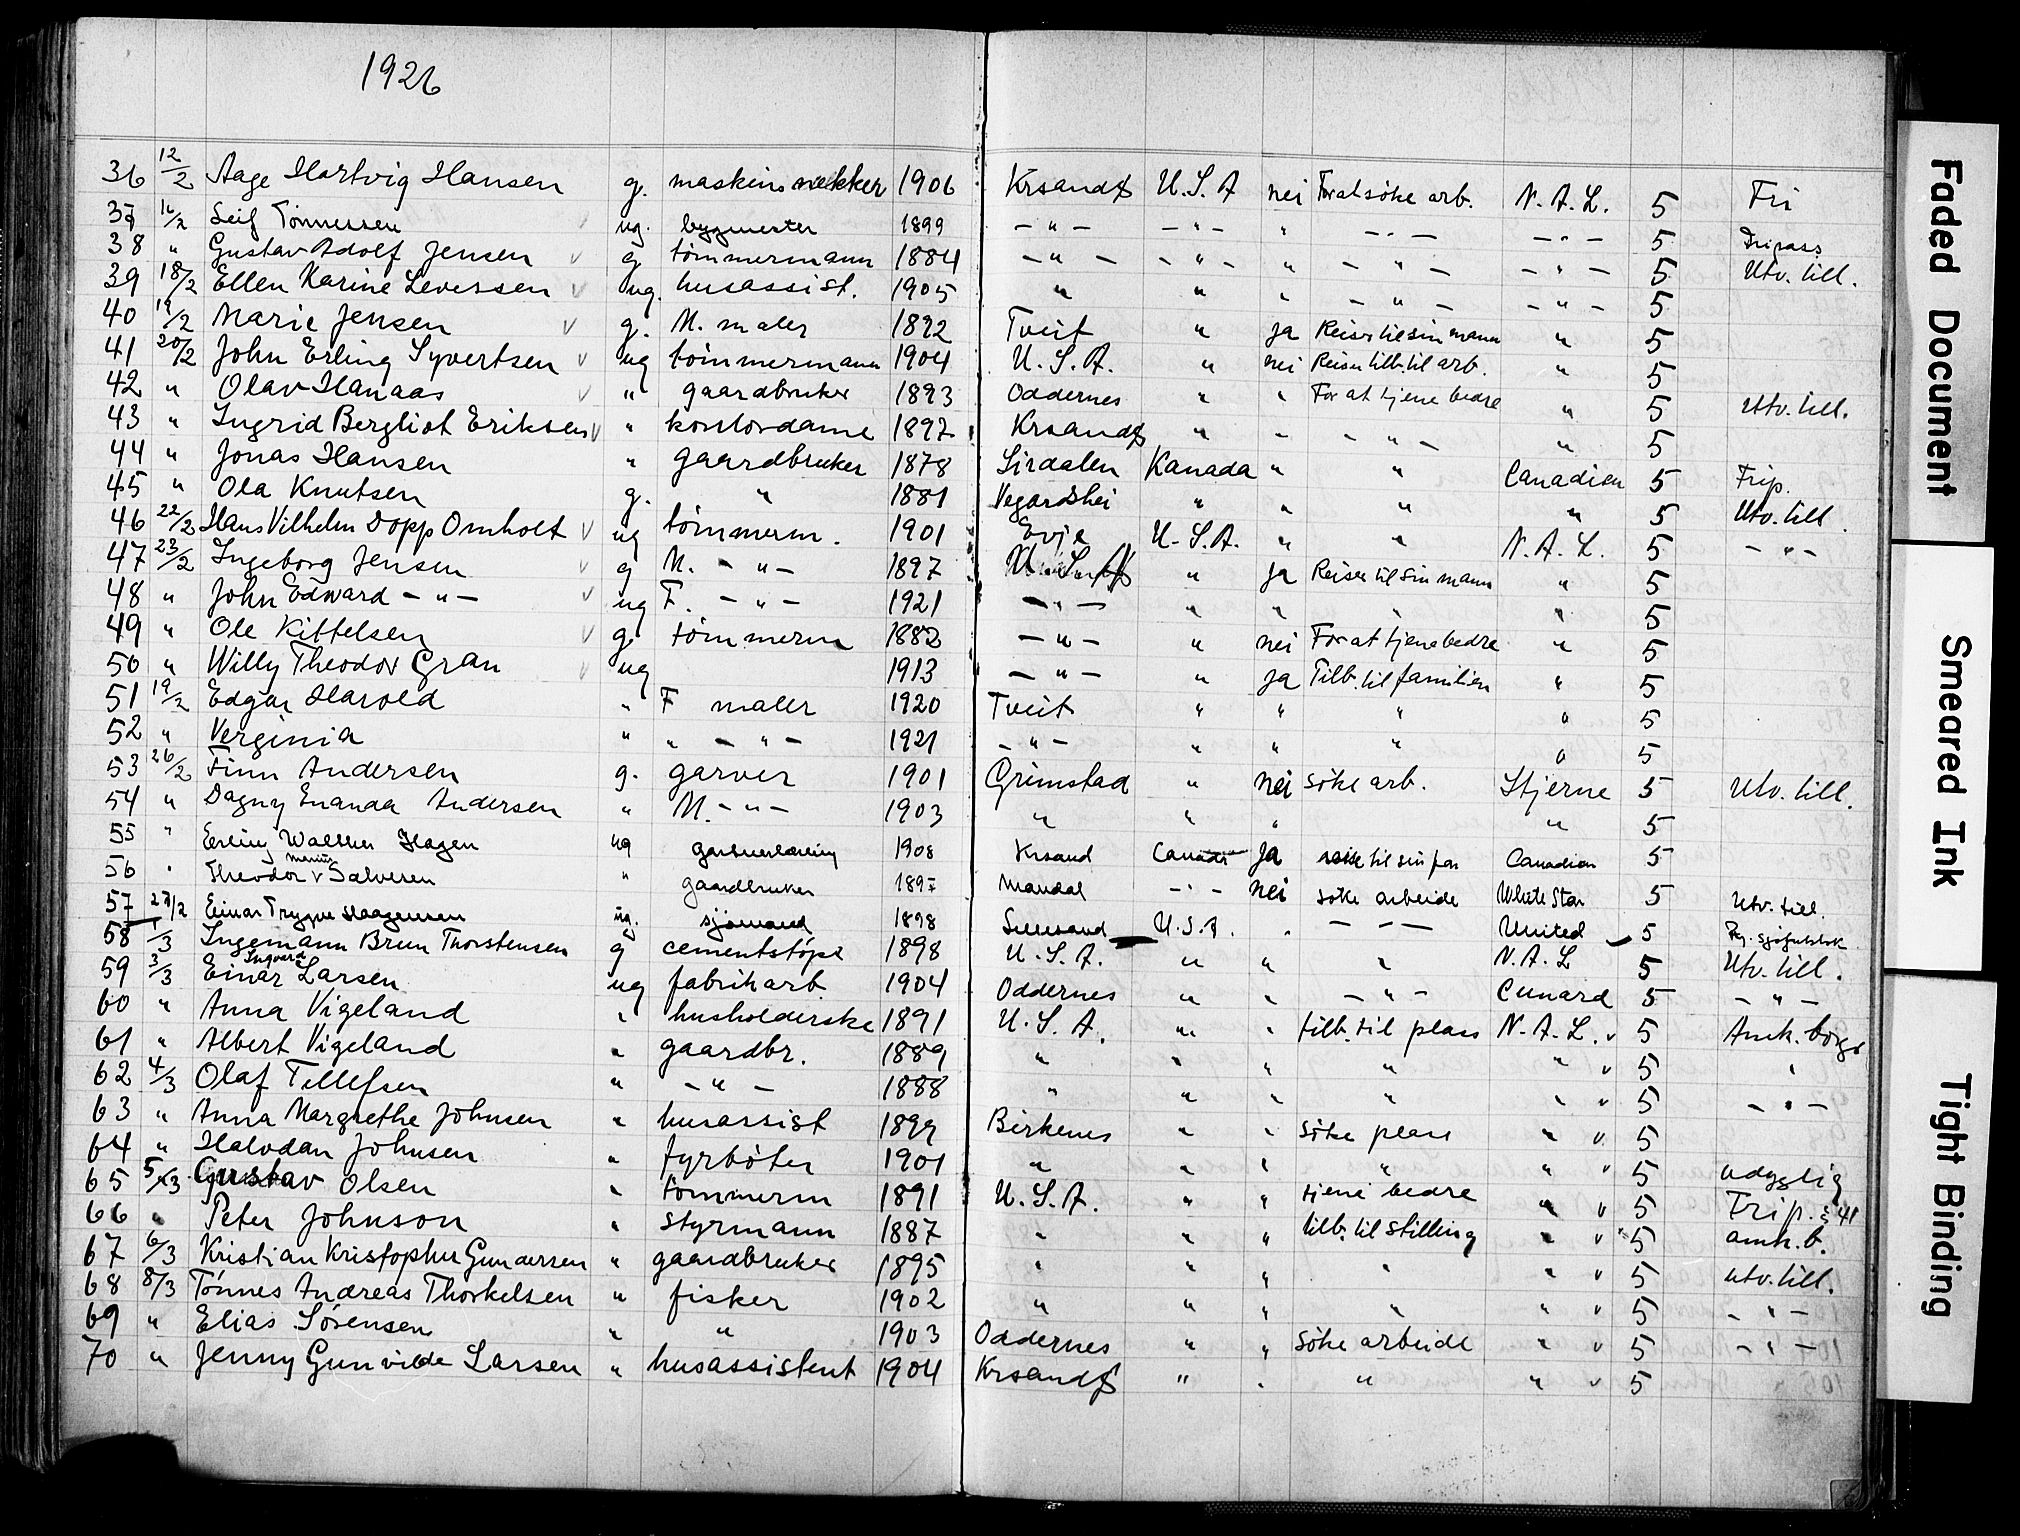 1926
36 12/2 Aage Hartvig Hansen g. maskinsnekker 1906 Krsand S U.S.A nei For at søke arb. N.A.L. 5 Fri
37 16/2 Leif Tønnessen ug. bygmester 1899 -"- -"- " -"- -"- 5 Fripass
38 " Gustav Adolf Jensen g tömmermann 1884 -"- -"- " -"- -"- 5 Utv. till.
39 18/2 Ellen Karine Severssen ug. husassist. 1905 " " " -"- -"- 5
40 19/2 Marie Jensen g. M. maler 1892 Tveit " ja Reiser til sin mann " 5
41 20/2 John Erling Syvertsen ug tömmermann 1904 U.S.A. " nei Reiser tilb. til arb. " 5
42 " Olav Hanaas " gaardbruker 1893 Oddernes " " For at tjene bedre " 5 Utv. till.
43 " Ingrid Bergliot Eriksen " kontordame 1897 Krsand S " - -"- " 5
44 " Jonas Hansen " gaardbruker 1878 Sirdalen Kanada " " Canadien 5 Frip.
45 " Ola Knutsen g. " 1881 Vegardshei " " " " 5 Utv. till.
46 22/2 Hans Vilhelm Dopp Omholt ug tömmerm. 1901 Evje U.S.A. " " N.A.L. 5 -"-
47 23/2 Ingeborg Jensen g M. -"- 1897 " ja Reiser til sin mann " 5
48 " John Edward -"- ug F. -"- 1921 -"- " " " " 5
49 " Ole Kittelsen g. tömmerm 1882 -"- " nei For at tjene bedre " 5
50 " Willy Theodor Gran ug 1913 -"- " ja Tilb. til familien " 5
51 19/2 Edgar Harold " F maler 1920 Tveit " " " " 5
52 " Verginia " " -"- 1921 -"- " " " " 5
53 26/2 Finn Andersen g. garver 1901 Grimstad " nei söke arb. Stjerne 5 Utv. till.
54 " Dagny Enanda Andersen " M. -"- 1903 " " " " 5
55 " Erling Walther Hagen ug gartnerlærling 1908 Krsand Canada ja reise til sin far Canadian 5
56 " Theodor Marius Salvesen " gaardbruker 1897 Mandal -"- nei søke arbeide White Star 5 Utv. till.
57 27/2 Einar Trygve Haagensen ug. sjømand 1898 U.S.A. " - -- United 5
58 1/3 Ingemann Brun Thorstensen g cementstöpe 1898 U.S.A. " " " N.A.L 5 Utv. till.
59 3/3 Einar Ingvard Larsen ug fabrikarb. 1904 Oddernes " " -"- Cunard 5 -"-
60 " Anna Vigeland " husholderske 1891 U.S.A. " " tilb. til plass N.A.L. v 5 Amk. borger
61 " Albert Vigeland " gaardbr. 1889 " " " " " v 5 "
62 4/3 Olaf Tellefsen " -"- 1888 " " " " " v 5 -"-
63 " Anna Margrethe Johnsen " husassist 1899 Birkenes " " söke plass " v 5
64 " Halvdan Johnsen " fyrböter 1901 " " " " " v 5 udyglig
65 5/3 Gustav Olsen " tömmerm 1891 U.S.A. " " tjene bedre " v 5 Frip. § 41
66 " Peter Johnson " styrmann 1887 " " " tilb. til stilling " v 5 amk. b.
67 6/3 Kristian Kristopher Gundersen " gaardbruker 1895 " " " " " v 5 utv. till.
68 8/3 Tønnes Andreas Thorkelsen " fisker 1902 " " " " " v 5 -"-
69 " Elias Sørensen " " 1903 Oddernes " " söke arbeide " v 5 -"-
70 " Jenny Gunvilde Larsen " husassistent 1904 Krsand S " " " " v 5
Faded Document
Smeared Ink
Tight Binding